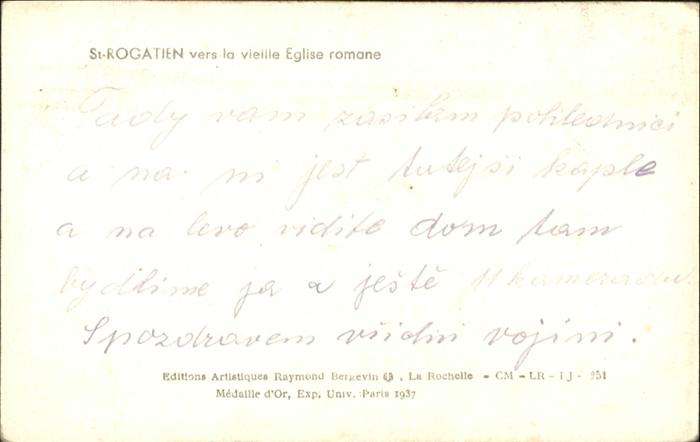 St-ROGATIEN vers la vieille Eglise romane
Tady vam zasilam pohlednici
a na ni jest tutejši kaple
a na levo vidite dom tam
bydlime ja a ještě 11 kameradu.
Spozdravem všidni vojini.
Editions Artistiques Raymond Bergevin, La Rochelle - CM - LR - IJ - 951
Médaille d'Or, Exp. Univ. Paris 1937